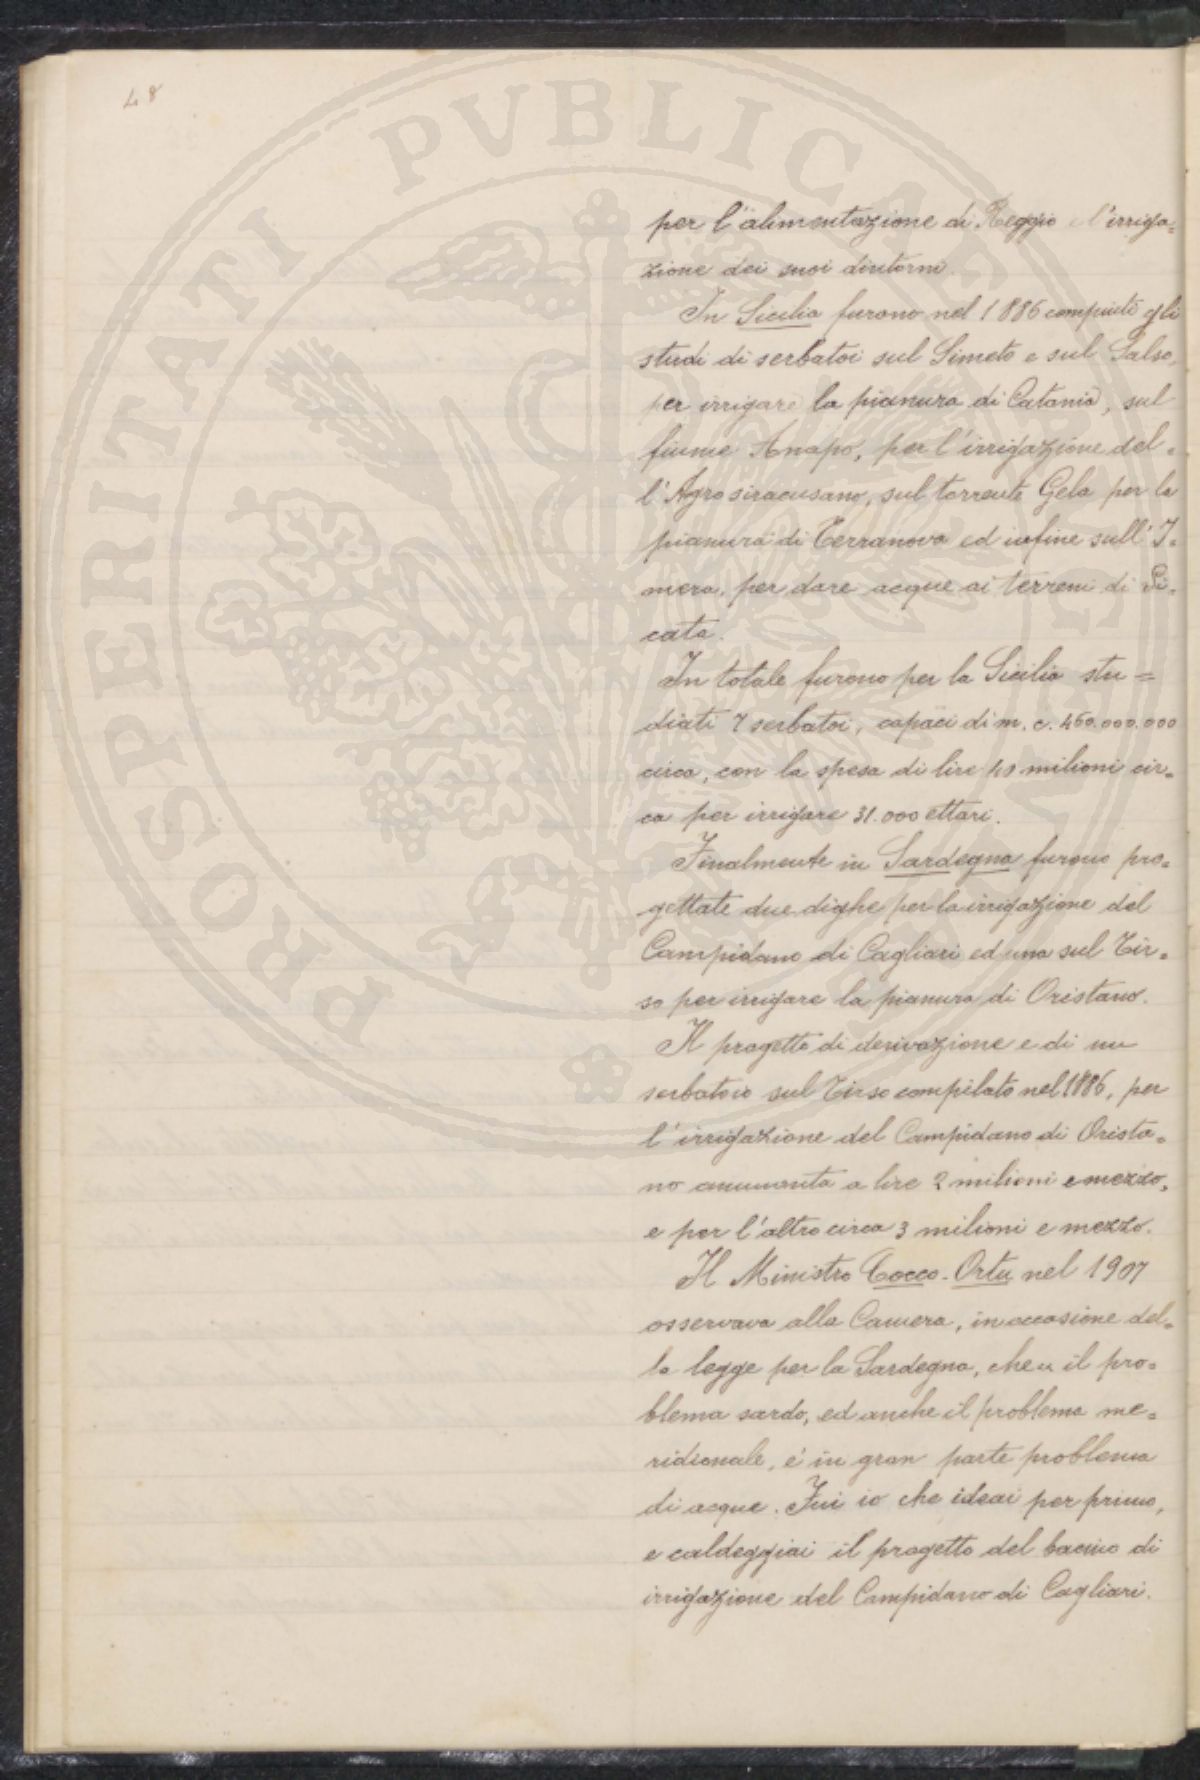 48
PROSPERITATI PVBLICAE
per l'alimentazione di Reggio e l'irriga=
zione dei suoi dintorni.
In Sicilia furono nel 1886 compiuti gli
studi di serbatoi sul Simeto e sul Salso,
per irrigare la pianura di Catania, sul
fiume Anapo, per l'irrigazione del=
l'Agro siracusano, sul torrente Gela per la
pianura di Terranova ed infine sull'I=
mera, per dare acque ai terreni di Li=
cata.
In totale furono per la Sicilia stu=
diati 7 serbatoi, capaci di m. c. 460.000.000
circa, con la spesa di lire 40 milioni cir=
ca per irrigare 31.000 ettari.
Finalmente in Sardegna furono pro=
gettate due dighe per la irrigazione del
Campidano di Cagliari ed una sul Tir=
so per irrigare la pianura di Oristano.
Il progetto di derivazione e di un
serbatoio sul Tirso compilato nel 1886, per
l'irrigazione del Campidano di Orista=
no ammonta a lire 2 milioni e mezzo,
e per l'altro circa 3 milioni e mezzo.
Il Ministro Cocco-Ortu nel 1907
osservava alla Camera, in occasione del=
la legge per la Sardegna, che « il pro=
blema sardo, ed anche il problema me=
ridionale, è in gran parte problema
di acque. Fui io che ideai per primo,
e caldeggiai il progetto del bacino di
irrigazione del Campidano di Cagliari.